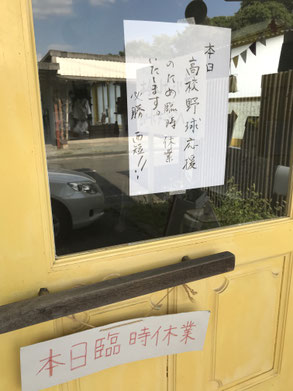 本日
高校野球応援
のため臨時休業
いたします。
必勝 西短!!
本日臨時休業